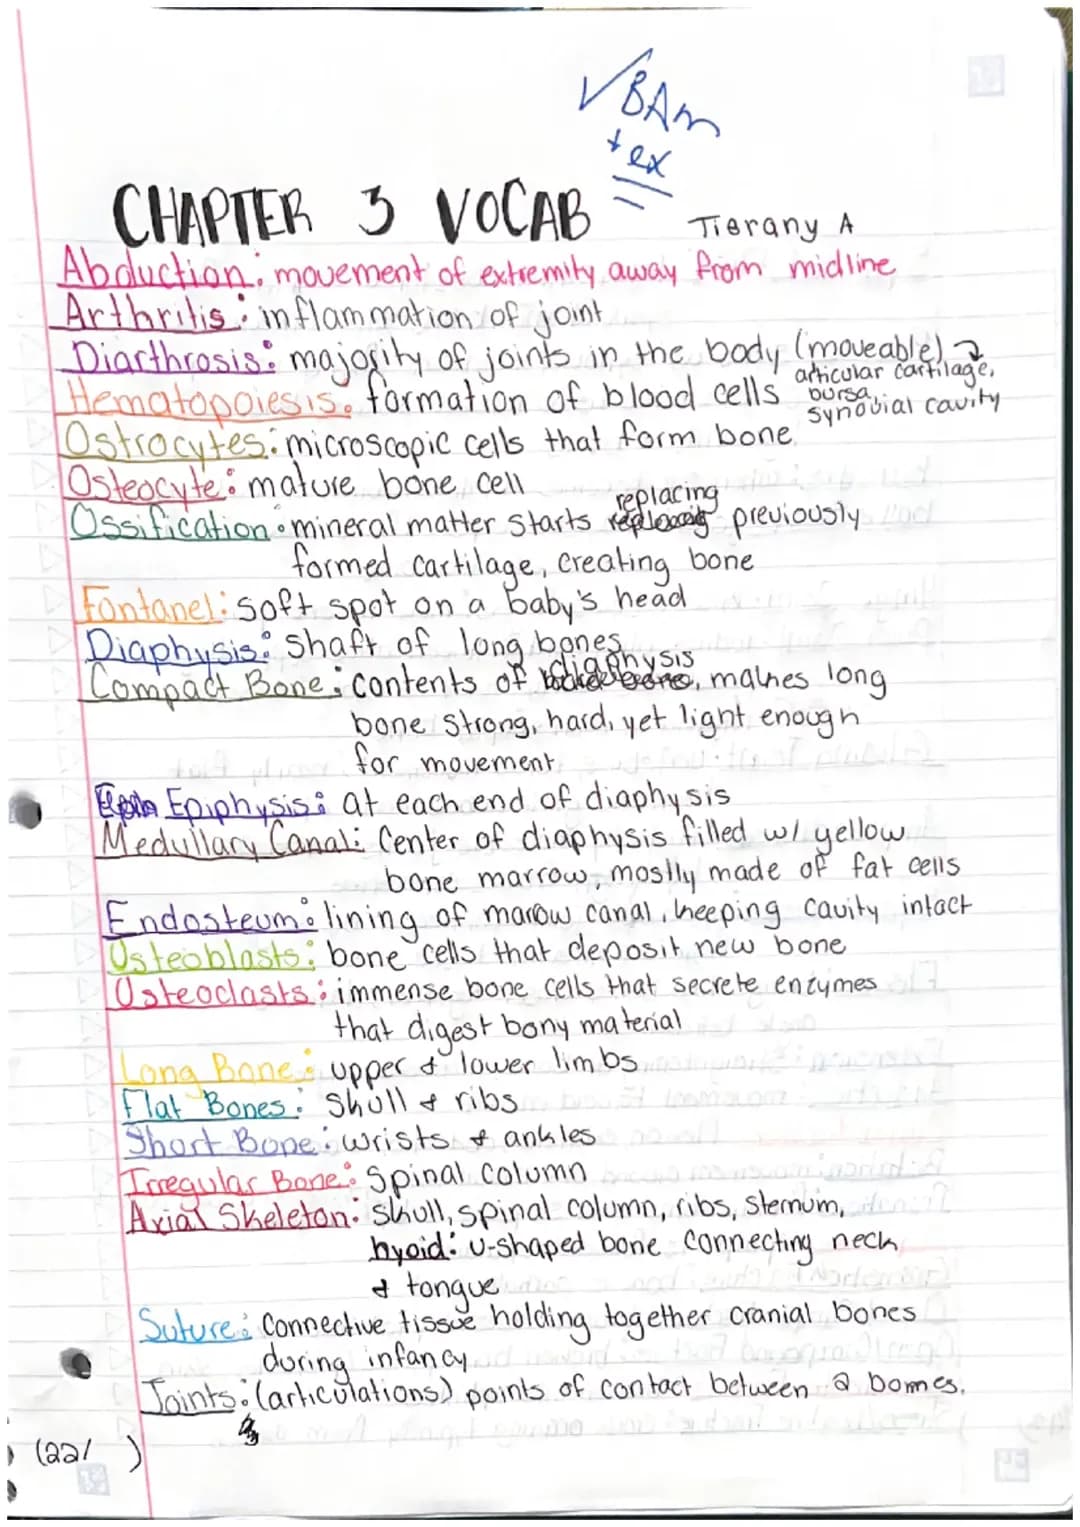 √BAM
+ ex
CHAPTER 3 VOCAB
Tierany A
Abduction: movement of extremity away from midline
Arthritis: inflammation of joint
Diarthrosis: majority of joints in the body (moveable)
articular cartilage,
bursa,
synovial cavity
Hematopoiesis: formation of blood cells
Ostrocytes: microscopic cells that form bone
Osteocyte: mature bone cell
Ossification: mineral matter starts replacing previously
formed cartilage, creating bone
Fontanel: soft spot on a baby's head
Diaphysis: Shaft of long bones
Compact Bone: contents of diaphysis, makes long
bone strong, hard, yet light enough
for movement
Epiphysis: at each end of diaphysis
Medullary Canal: Center of diaphysis filled w/ yellow
bone marrow, mostly made of fat cells
Endosteum: lining of marow canal, keeping cavity intact
Osteoblasts: bone cells that deposit new bone
Osteoclasts: immense bone cells that secrete enzymes
that digest bony material
Long Bone: upper & lower limbs
Flat Bones: Skull & ribs
Short Bone: wrists & ankles
Irregular Bone: Spinal column
Axial Skeleton: skull, spinal column, ribs, sternum,
hyoid: U-shaped bone connecting neck
& tongue
Suture: Connective tissue holding together cranial bones
during infancy
Joints: (articulations) points of contact between 2 bomes.
(22/ )